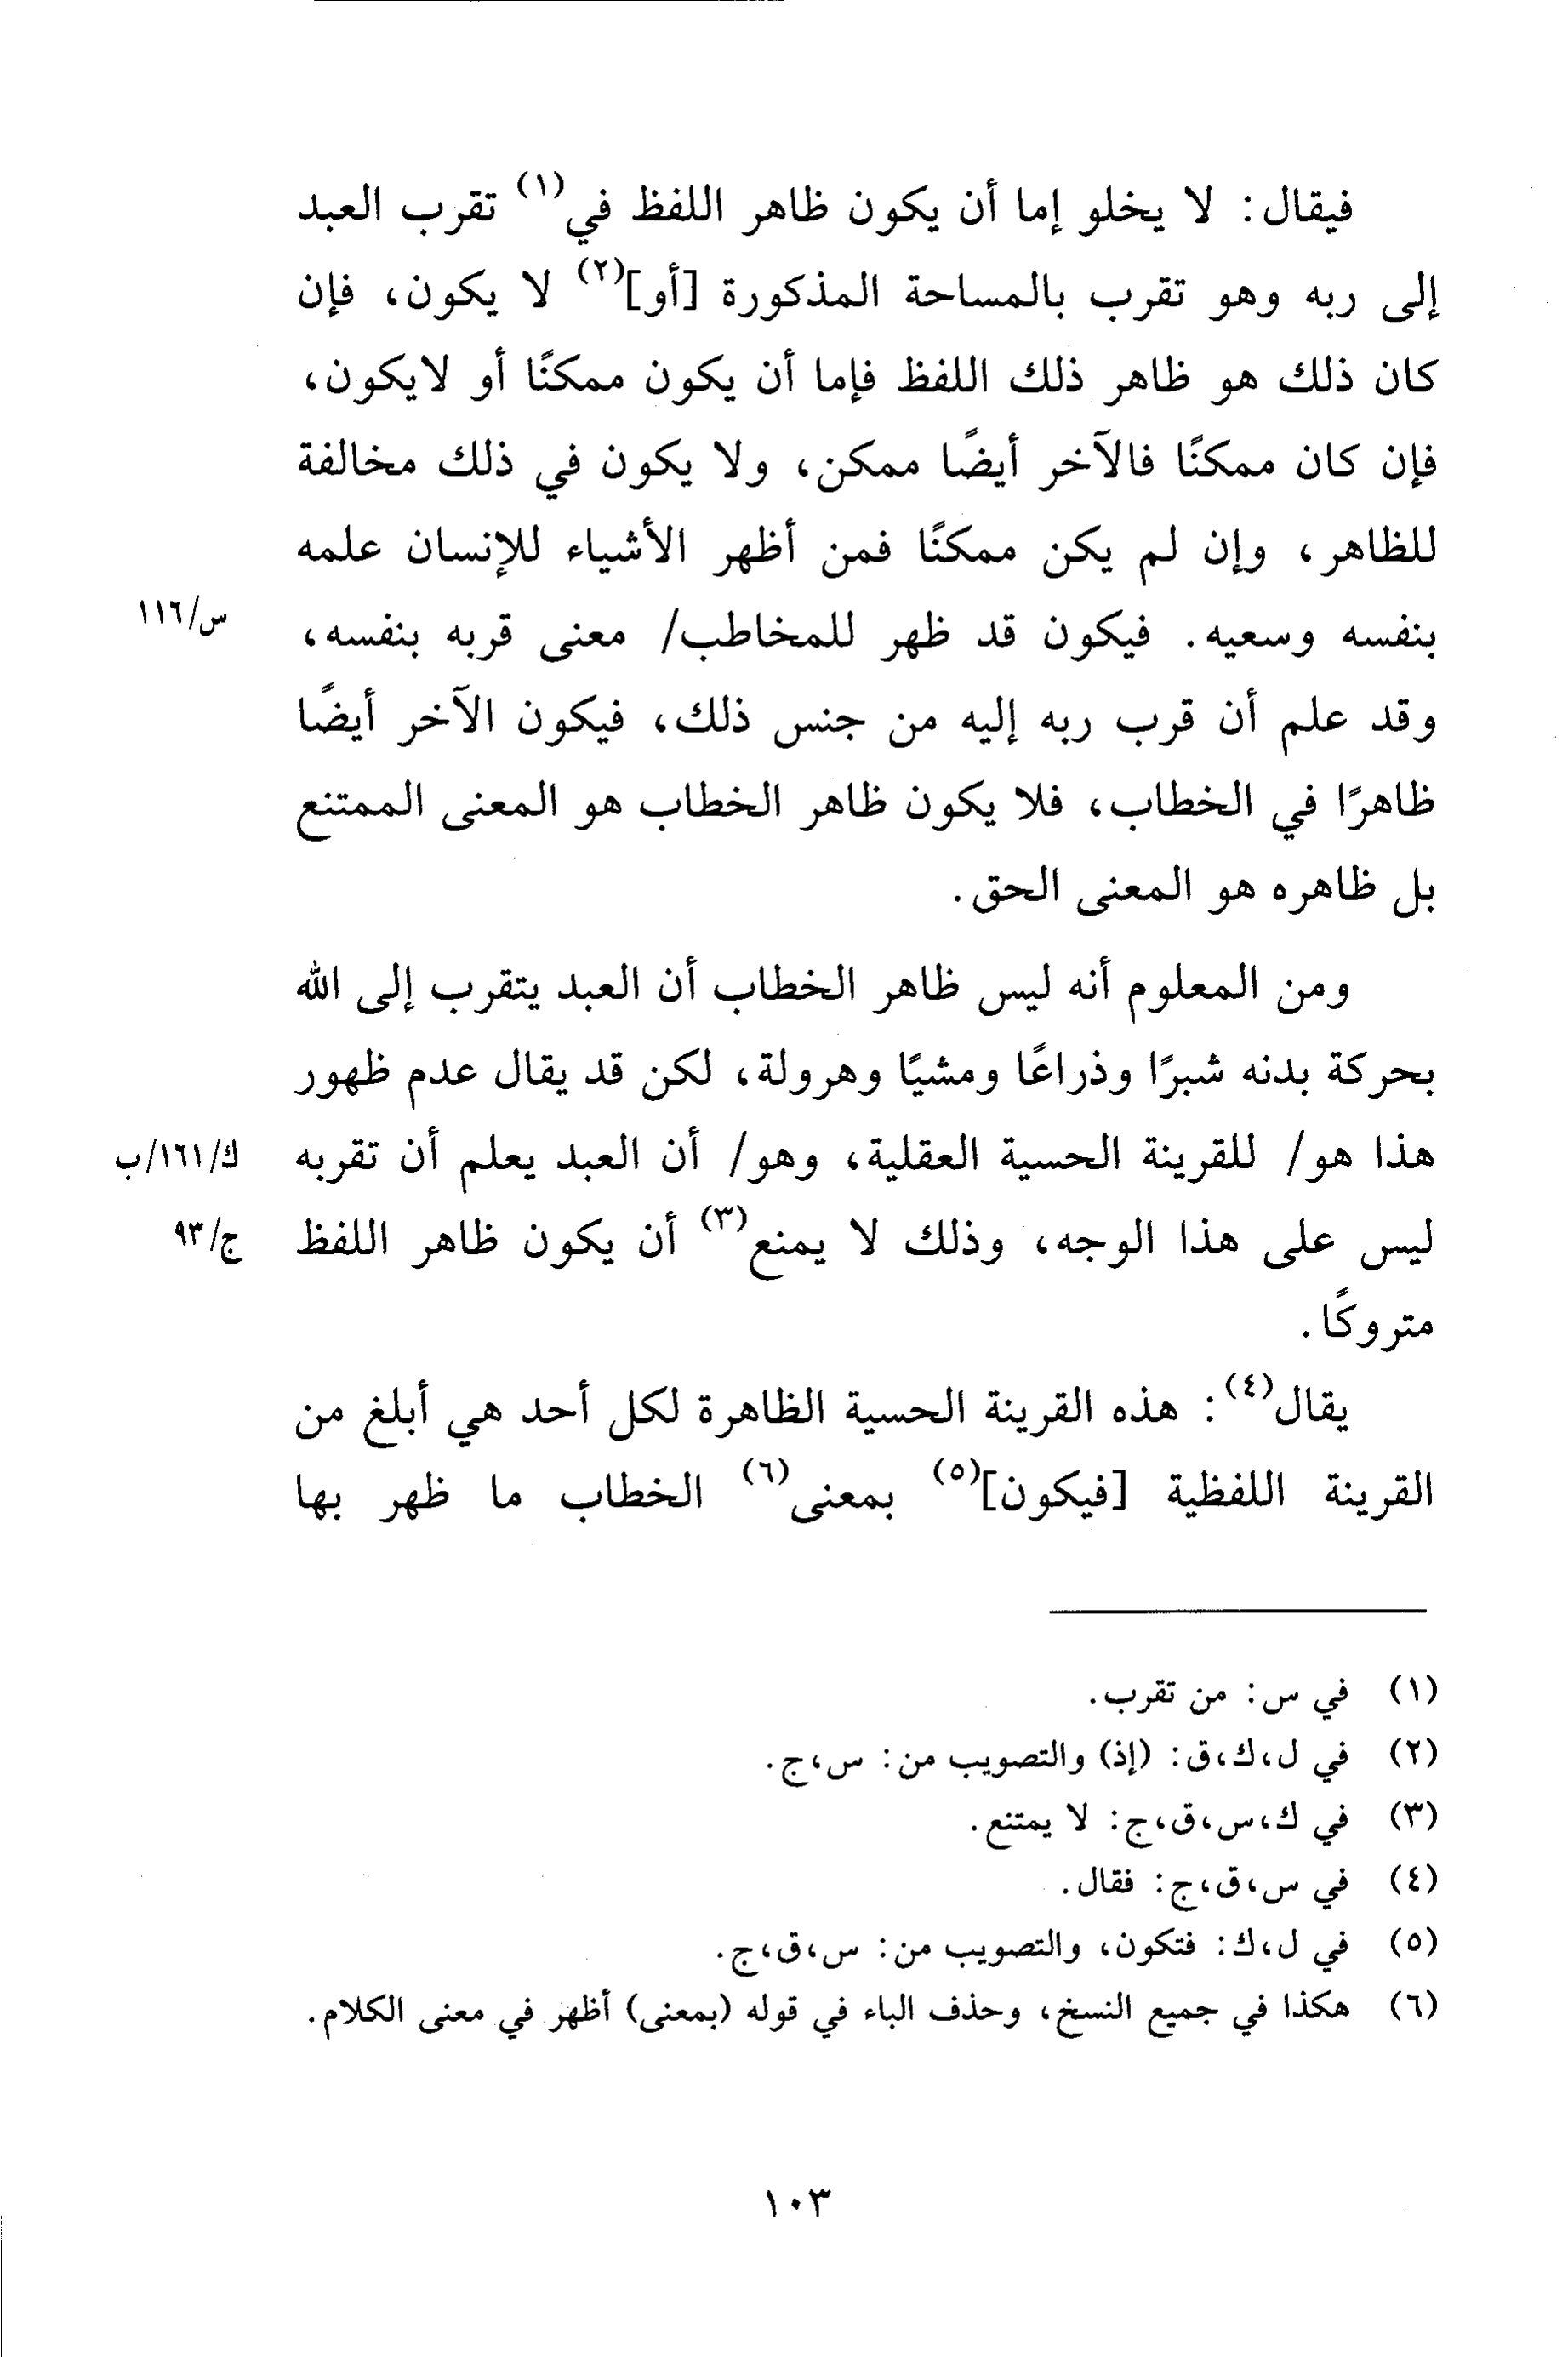 فيقال: لا يخلو إما أن يكون ظاهر اللفظ في(١) تقرب العبد
إلى ربه وهو تقرب بالمساحة المذكورة [أو](٢) لا يكون، فإن
كان ذلك هو ظاهر ذلك اللفظ فإما أن يكون ممكنًا أو لايكون،
فإن كان ممكنًا فالآخر أيضًا ممكن، ولا يكون في ذلك مخالفة
للظاهر، وإن لم يكن ممكنًا فمن أظهر الأشياء للإنسان علمه
بنفسه وسعيه. فيكون قد ظهر للمخاطب/ معنى قربه بنفسه،
س/١١٦
وقد علم أن قرب ربه إليه من جنس ذلك، فيكون الآخر أيضًا
ظاهرًا في الخطاب، فلا يكون ظاهر الخطاب هو المعنى الممتنع
بل ظاهره هو المعنى الحق.
ومن المعلوم أنه ليس ظاهر الخطاب أن العبد يتقرب إلى الله
بحركة بدنه شبرًا وذراعًا ومشيًا وهرولة، لكن قد يقال عدم ظهور
هذا هو/ للقرينة الحسية العقلية، وهو/ أن العبد يعلم أن تقربه
ك/١٦١/ب
ليس على هذا الوجه، وذلك لا يمنع(٣) أن يكون ظاهر اللفظ
ج/٩٣
متروكًا.
يقال(٤): هذه القرينة الحسية الظاهرة لكل أحد هي أبلغ من
القرينة اللفظية [فيكون](٥) بمعنى(٦) الخطاب ما ظهر بها
(١) في س: من تقرب.
(٢) في ل،ك،ق: (إذ) والتصويب من: س،ج.
(٣) في ك،س،ق،ج: لا يمتنع.
(٤) في س،ق،ج: فقال.
(٥) في ل،ك: فتكون، والتصويب من: س،ق،ج.
(٦) هكذا في جميع النسخ، وحذف الباء في قوله (بمعنى) أظهر في معنى الكلام.
١٠٣